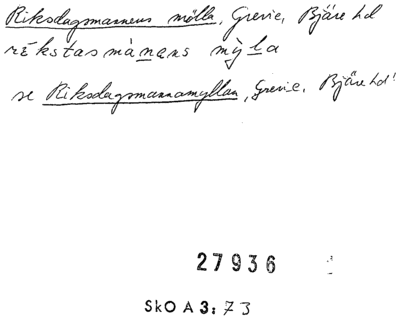 Riksdagsmannens mölla, Grevie, Bjäre hd
rékstasmànans mỳla
se Riksdagsmannamyllan, Grevie, Bjäre hd
27936
SkO A 3: 73